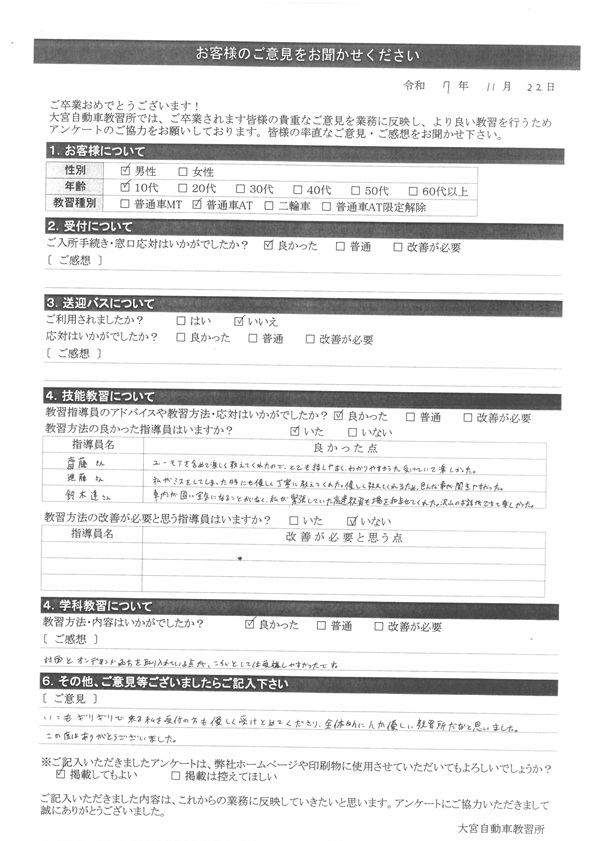 お客様のご意見をお聞かせください
令和 7 年 11 月 22 日
ご卒業おめでとうございます！
大宮自動車教習所では、ご卒業されます皆様の貴重なご意見を業務に反映し、より良い教習を行うため
アンケートのご協力をお願いしております。皆様の率直なご意見・ご感想をお聞かせ下さい。
1. お客様について
性別 ☑ 男性 □ 女性
年齢 ☑ 10代 □ 20代 □ 30代 □ 40代 □ 50代 □ 60代以上
教習種別 □ 普通車MT ☑ 普通車AT □ 二輪車 □ 普通車AT限定解除
2. 受付について
ご入所手続き・窓口応対はいかがでしたか？ ☑ 良かった □ 普通 □ 改善が必要
〔 ご感想 〕
3. 送迎バスについて
ご利用されましたか？ □ はい ☑ いいえ
応対はいかがでしたか？ □ 良かった □ 普通 □ 改善が必要
〔 ご感想 〕
4. 技能教習について
教習指導員のアドバイスや教習方法・応対はいかがでしたか？ ☑ 良かった □ 普通 □ 改善が必要
教習方法の良かった指導員はいますか？ ☑ いた □ いない
指導員名 良かった点
齋藤さん ユーモアを含めて楽しく教えてくれたので、とても話しやすく、わかりやすかった 楽しかった。
進藤さん 私がミスをしてしまった時にも優しく丁寧に教えてくれた。優しく教えてくれるため、色んな事が聞きやすかった。
鈴木達さん 車内が固い空気になることがなく、私が緊張していた高速教習も場を和ませてくれた。沢山のお話ができて楽しかった。
教習方法の改善が必要と思う指導員はいますか？ □ いた ☑ いない
指導員名 改善が必要と思う点
4. 学科教習について
教習方法・内容はいかがでしたか？ ☑ 良かった □ 普通 □ 改善が必要
〔 ご感想 〕
対面とオンデマンド両方を取り入れている点が、こちらとしては受講しやすかったです。
6. その他、ご意見等ございましたらご記入下さい
〔 ご意見 〕
いつもぎりぎりで来る私を受付の方も優しく受けとめてくださり、全体的に人が優しい教習所だなと思いました。
この度はありがとうございました。
※ご記入いただきましたアンケートは、弊社ホームページや印刷物に使用させていただいてもよろしいでしょうか？
☑ 掲載してもよい □ 掲載は控えてほしい
ご記入いただきました内容は、これからの業務に反映していきたいと思います。アンケートにご協力いただきまして
誠にありがとうございました。
大宮自動車教習所